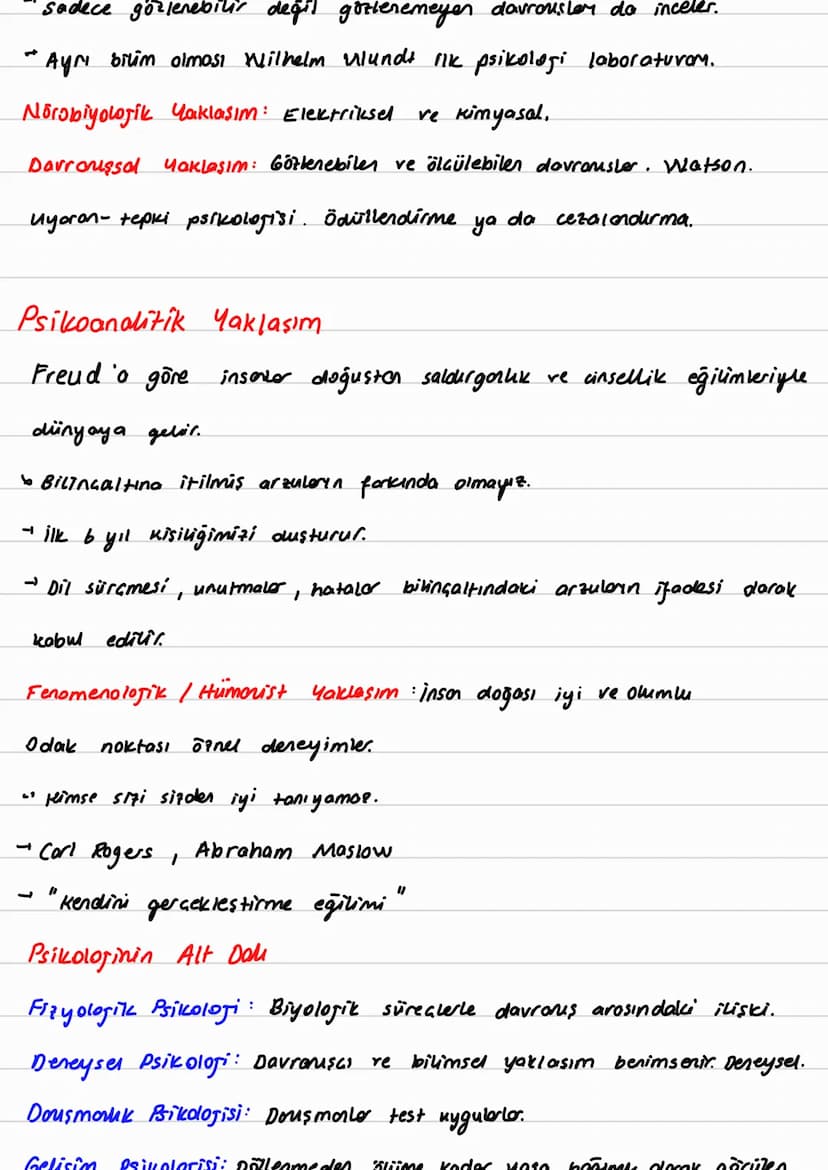 sadece gözlenebilir değil gözlenemeyen davranışları da inceler.
→ Ayrı bilim olması Wilhelm Wundt ilk psikoloji laboratuvarı.
Nörobiyolojik Yaklaşım: Elektriksel ve kimyasal.
Davranışsal yaklaşım: Gözlenebilen ve ölçülebilen davranışlar. Watson.
Uyaran-tepki psikolojisi. Ödüllendirme ya da cezalandırma.
Psikoanalitik Yaklaşım
Freud'a göre insanlar doğuştan saldırganlık ve cinsellik eğilimleriyle
dünyaya gelir.
↳ Bilinçaltına itilmiş arzuların farkında olmayız.
→ İlk 6 yıl kişiliğimizi oluşturur.
→ Dil sürçmesi, unutmalar, hatalar bilinçaltındaki arzuların ifadesi olarak
kabul edilir.
Fenomenolojik / Hümanist Yaklaşım: İnsan doğası iyi ve olumlu
Odak noktası öznel deneyimler.
→ Kimse sizi sizden iyi tanıyamaz.
→ Carl Rogers, Abraham Maslow
→ "Kendini gerçekleştirme eğilimi"
Psikolojinin Alt Dalı
Fizyolojik Psikoloji: Biyolojik süreçlerle davranış arasındaki ilişki.
Deneysel Psikoloji: Davranışçı ve bilimsel yaklaşım benimsenir. Deneysel.
Danışmanlık Psikolojisi: Danışmanlar test uygularlar.
Gelişim Psikolojisi: Döllenmeden ölüme kadar yaşa bağımlı olarak görülen